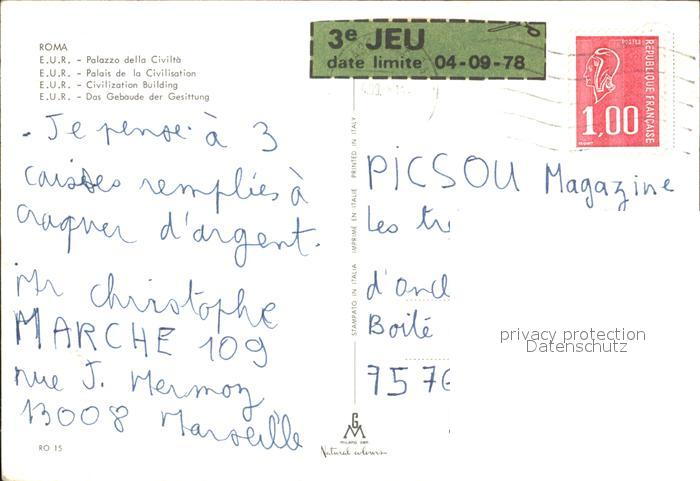 ROMA
E.U.R. - Palazzo della Civiltà
E.U.R. - Palais de la Civilisation
E.U.R. - Civilization Building
E.U.R. - Das Gebaude der Gesittung
3e JEU
date limite 04-09-78
POSTES
REPUBLIQUE FRANÇAISE
1,00
- Je pense à 3
caisses remplies à
craquer d'argent.
Mr christophe
MARCHE 109
rue J. Mermoz
13008 Marseille
RO 15
STAMPATO IN ITALIA IMPRIMÉ EN ITALIE PRINTED IN ITALY
PICSOU Magazine
Les tr
d'oncl
Boîte
7576
privacy protection
Datenschutz
GM
Natural colours